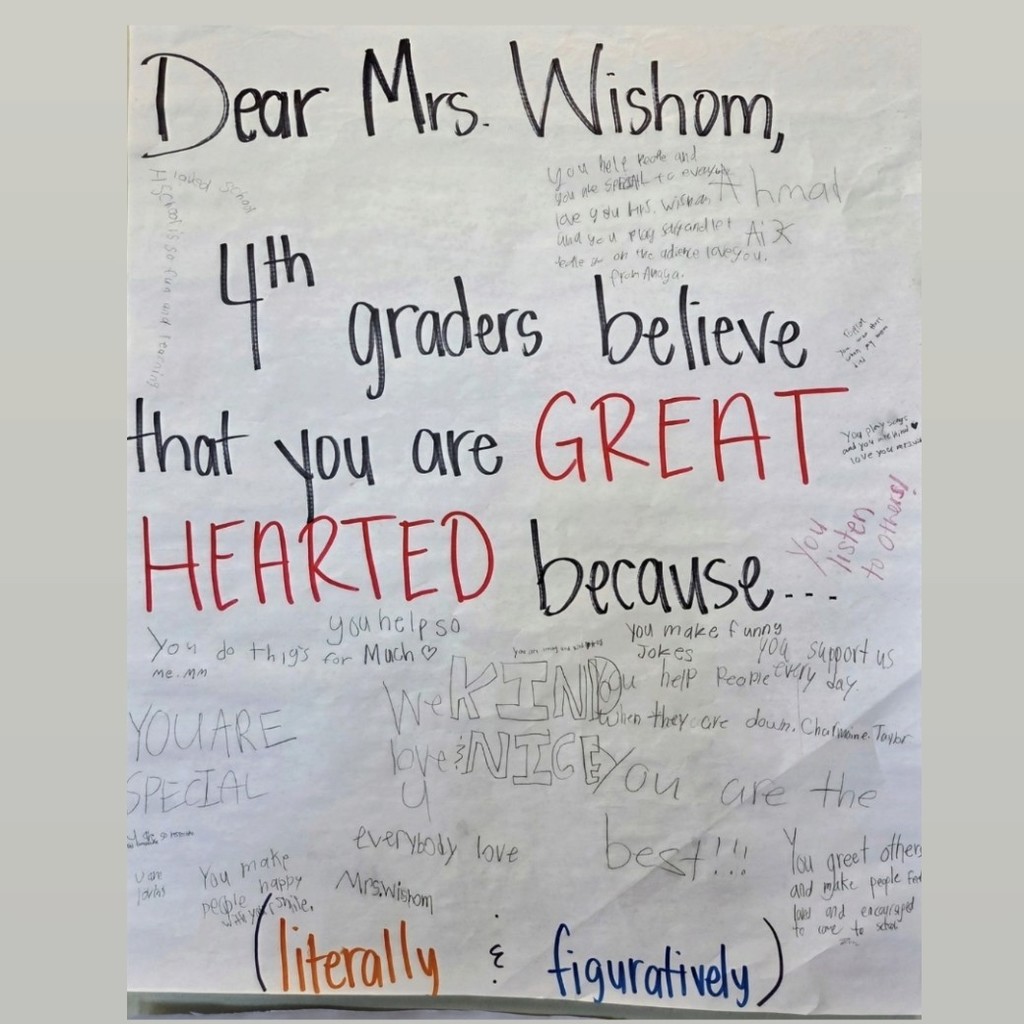 Dear Mrs. Wishom,
You help
you are SPECIAL to
love you Mrs. Wishom
and you play
on the
love you.
from Amaya.
Ahmad
school is so fun and learning
4th
graders believe
that you are GREAT
You play songs
and you are kind
love you
HEARTED because...
You
listen
to others!
you help so
Much ♡
You do thigs for
me. MM
You make funny
Jokes
you support us
every day.
We
love
u
KIND
& NICE
You help People
when they are down. Charmaine. Taylor
YOU ARE
SPECIAL
You are the
best!!!
everybody love
Mrs. Wishom
You make
people happy
with your smile.
You greet others
and make people feel
loved and encouraged
to come to school
(literally & figuratively)